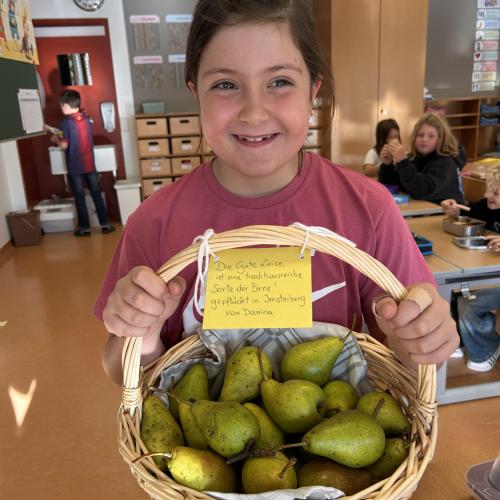 Die Gute Luise
ist eine traditionsreiche
Sorte der Birne!
gepflückt in Imsterberg
von Davina